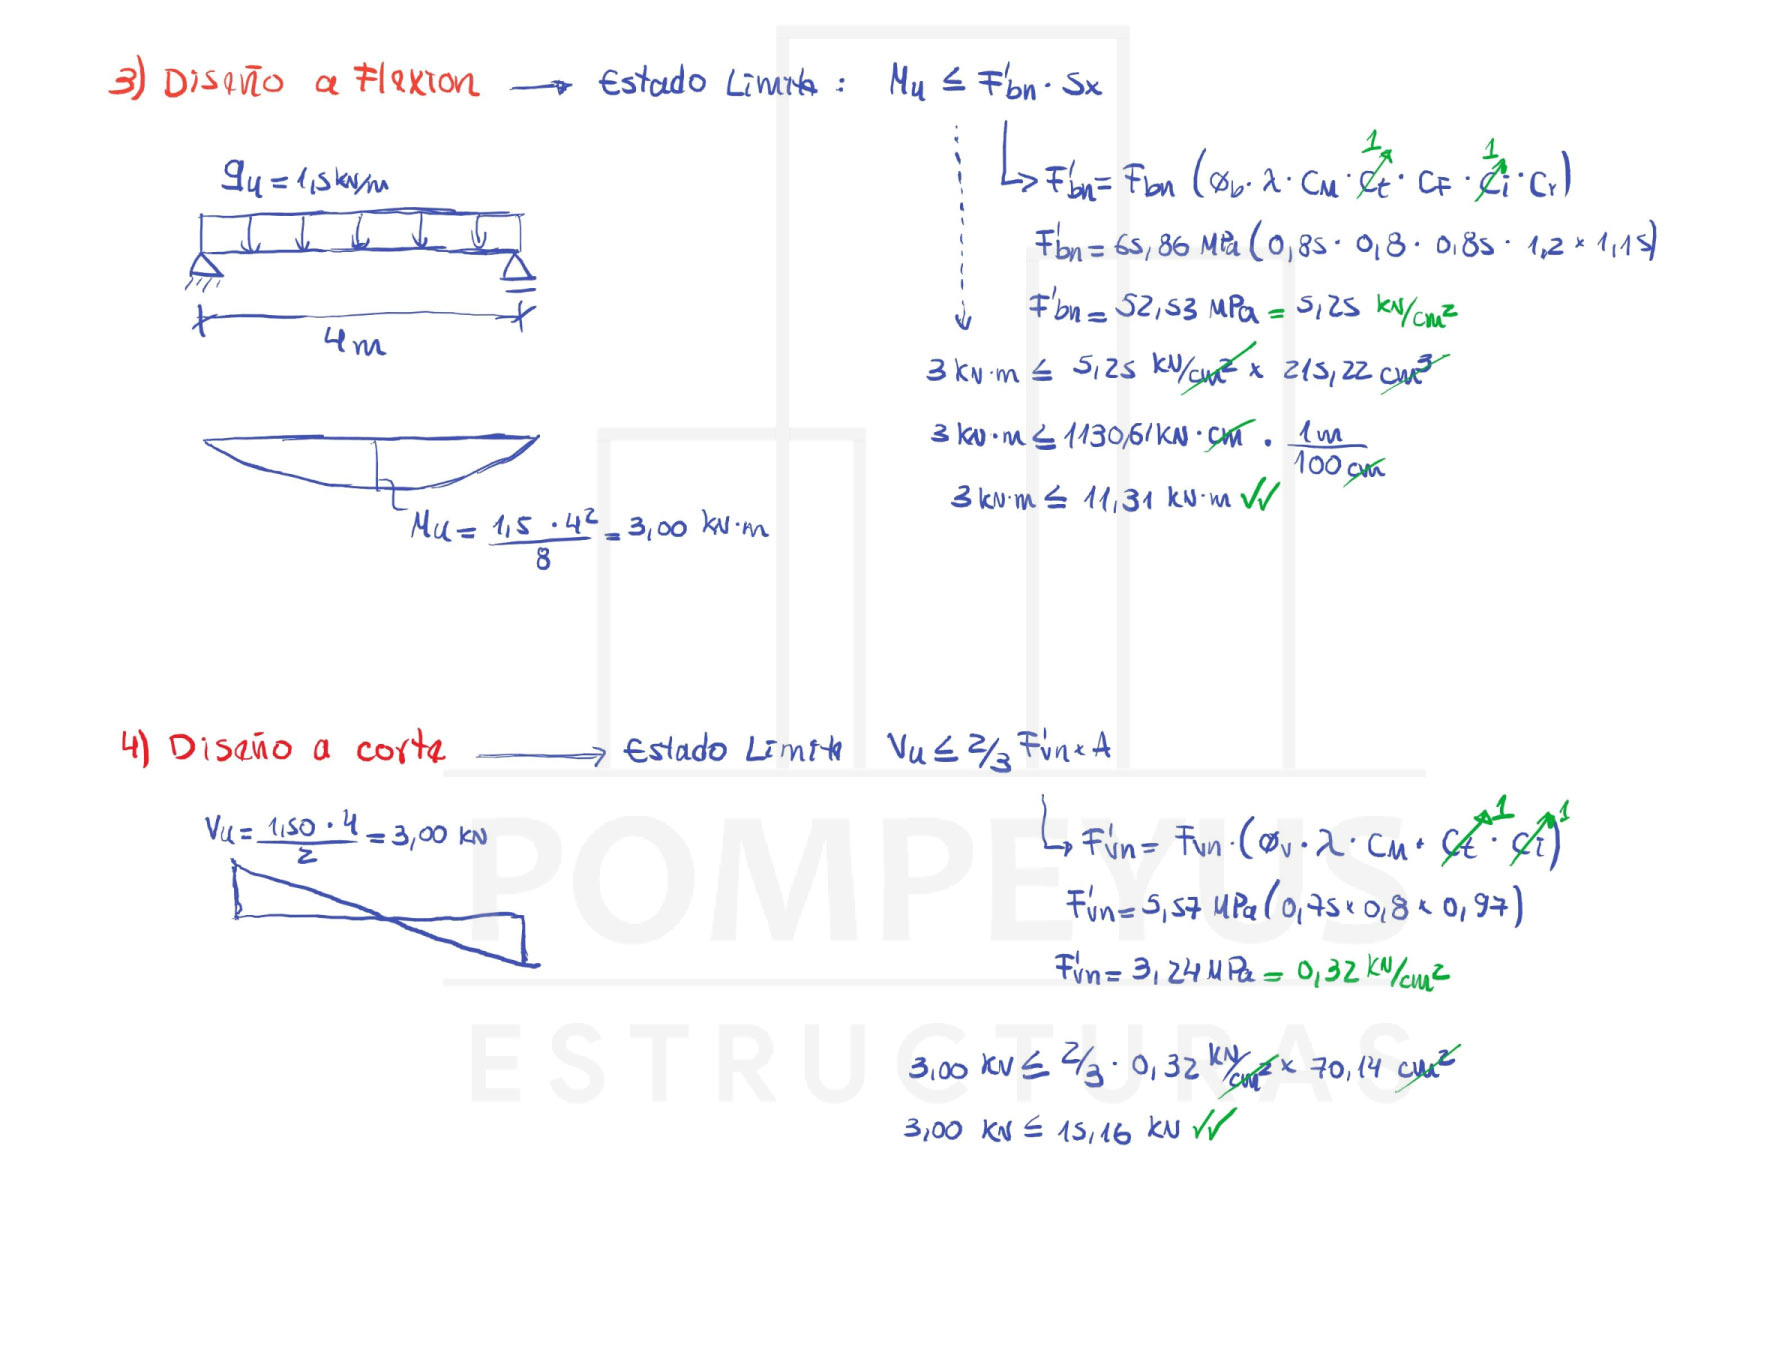 3) Diseño a Flexion → Estado Limite : Mu ≤ F'bn · Sx
qu = 1,5 kN/m
4 m
Mu = 1,5 · 4² / 8 = 3,00 kN·m
1 1
F'bn = Fbn (Øb · λ · CM · Ct · CF · Ci · Cr)
F'bn = 65,86 MPa (0,85 · 0,8 · 0,85 · 1,2 × 1,15)
F'bn = 52,53 MPa = 5,25 kN/cm²
3 kN·m ≤ 5,25 kN/cm² × 215,22 cm³
3 kN·m ≤ 1130,61 kN · cm · 1m / 100 cm
3 kN·m ≤ 11,31 kN·m ✓✓
4) Diseño a corte → Estado Limite Vu ≤ 2/3 F'vn × A
Vu = 1,50 · 4 / 2 = 3,00 kN
1 1
F'vn = Fvn · (Øv · λ · CM · Ct · Ci)
F'vn = 5,57 MPa (0,75 × 0,8 × 0,97)
F'vn = 3,24 MPa = 0,32 kN/cm²
3,00 kN ≤ 2/3 · 0,32 kN/cm² × 70,14 cm²
3,00 kN ≤ 15,16 kN ✓✓
POMPEYUS
ESTRUCTURAS